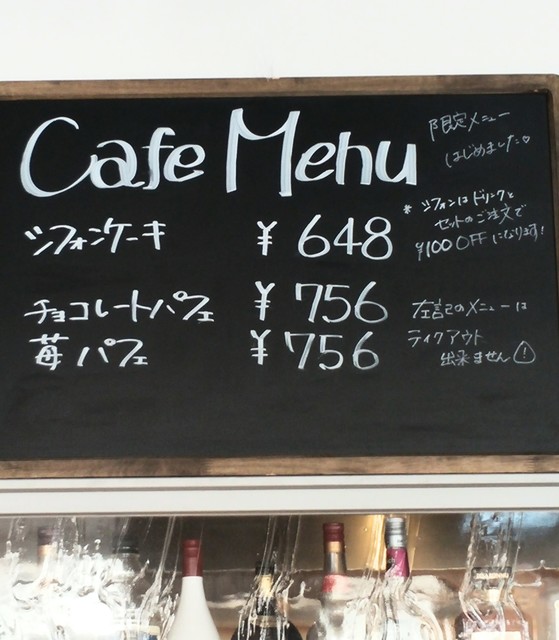 Cafe Menu
限定メニュー
はじめました♡
シフォンケーキ ¥ 648
* シフォンは ドリンクと
セットのご注文で
¥100 OFF になります!
チョコレートパフェ ¥ 756
苺 パフェ ¥ 756
左記のメニューは
テイクアウト
出来ません!